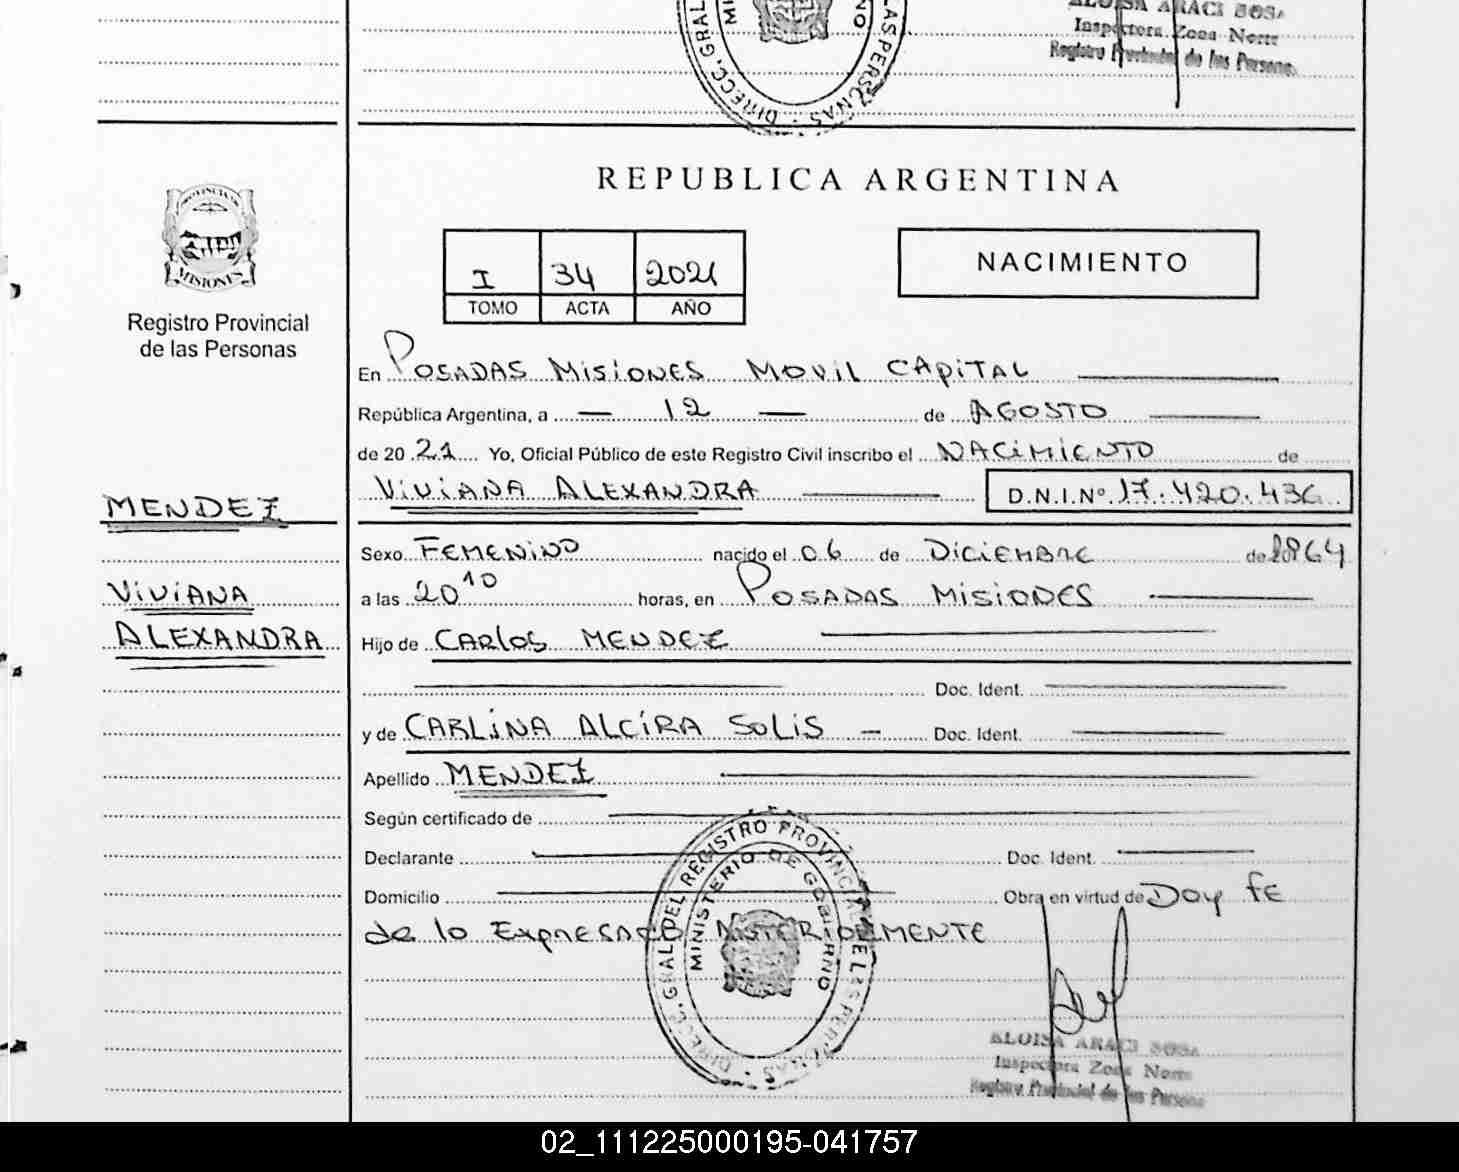 ALOISA ARACI SOSA
Inspectora Zona Norte
Registro Provincial de las Personas
PROVINCIA
MISIONES
Registro Provincial
de las Personas
MENDEZ
VIVIANA
ALEXANDRA
REPUBLICA ARGENTINA
I 34 2021
TOMO ACTA AÑO
NACIMIENTO
En POSADAS MISIONES MOVIL CAPITAL
República Argentina, a — 12 — de AGOSTO
de 20 21 Yo, Oficial Público de este Registro Civil inscribo el NACIMIENTO de
VIVIANA ALEXANDRA D.N.I.Nº 17.420.436
Sexo FEMENINO nacido el 06 de DICIEMBRE de 1964
a las 20 10 horas, en POSADAS MISIONES
Hijo de CARLOS MENDEZ
Doc. Ident.
y de CARLINA ALCIRA SOLIS — Doc. Ident.
Apellido MENDEZ
Según certificado de
Declarante Doc. Ident.
Domicilio Obra en virtud de Doy fe
de lo EXPRESADO ANTERIORMENTE
DIRECC. GRAL. DEL REGISTRO PROVINCIAL DE LAS PERSONAS
MINISTERIO DE GOBIERNO
ALOISA ARACI SOSA
Inspectora Zona Norte
Registro Provincial de las Personas
02_111225000195-041757